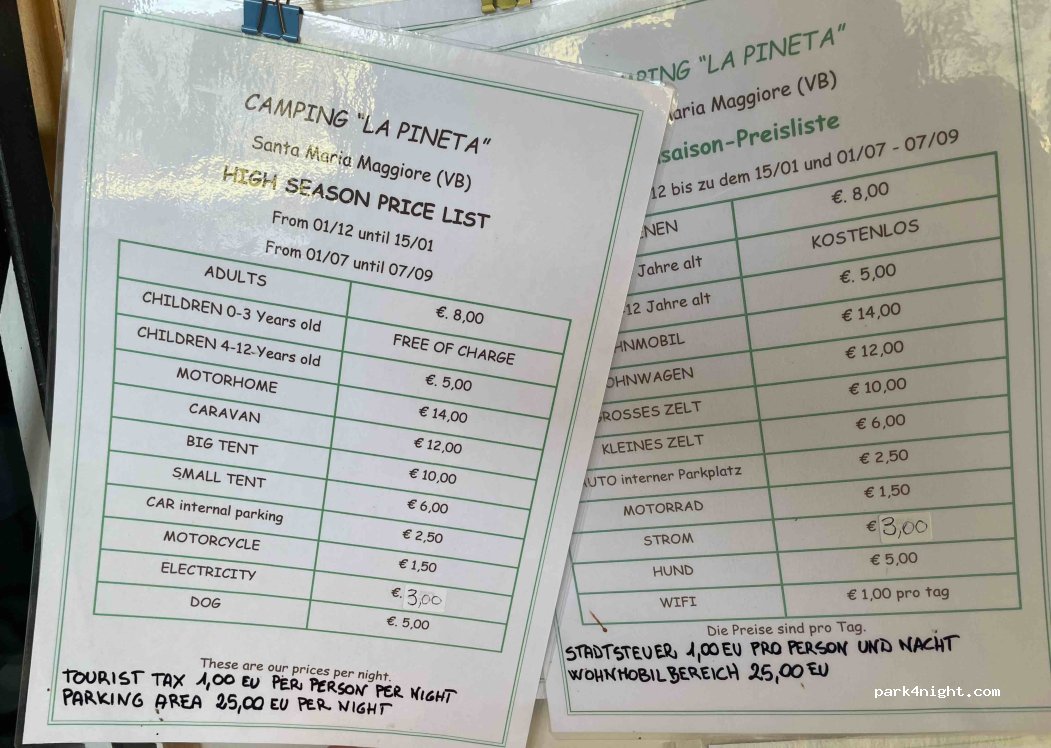 CAMPING "LA PINETA"
Santa Maria Maggiore (VB)
HIGH SEASON PRICE LIST
From 01/12 until 15/01
From 01/07 until 07/09
ADULTS €. 8,00
CHILDREN 0-3 Years old FREE OF CHARGE
CHILDREN 4-12 Years old €. 5,00
MOTORHOME € 14,00
CARAVAN € 12,00
BIG TENT € 10,00
SMALL TENT € 6,00
CAR internal parking € 2,50
MOTORCYCLE € 1,50
ELECTRICITY €. 3,00
DOG €. 5,00
These are our prices per night.
TOURIST TAX 1,00 EU PER PERSON PER NIGHT
PARKING AREA 25,00 EU PER NIGHT
PING "LA PINETA"
Maria Maggiore (VB)
saison-Preisliste
12 bis zu dem 15/01 und 01/07 - 07/09
NEN €. 8,00
Jahre alt KOSTENLOS
-12 Jahre alt €. 5,00
HNMOBIL € 14,00
OHNWAGEN € 12,00
GROSSES ZELT € 10,00
KLEINES ZELT € 6,00
AUTO interner Parkplatz € 2,50
MOTORRAD € 1,50
STROM € 3,00
HUND € 5,00
WIFI € 1,00 pro tag
Die Preise sind pro Tag.
STADTSTEUER 1,00 EU PRO PERSON UND NACHT
WOHNMOBILBEREICH 25,00 EU
park4night.com